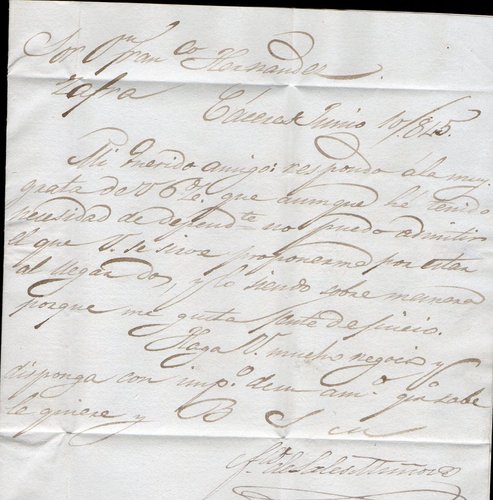 Sor Dn Franco Hernandez
Zafra
Cáceres Junio 10/845.
Mi querido amigo: respondo á la muy
grata de V. que aunque hé tenido
necesidad de dependte no puedo admitir
el que V. se sirve proponerme por estar
al llegar dos, y lo siendo sobre manera
porque me gusta gente de juicio.
Haga V. mucho negocio y
disponga con impo de su amo qe sabe
le quiere y B S M